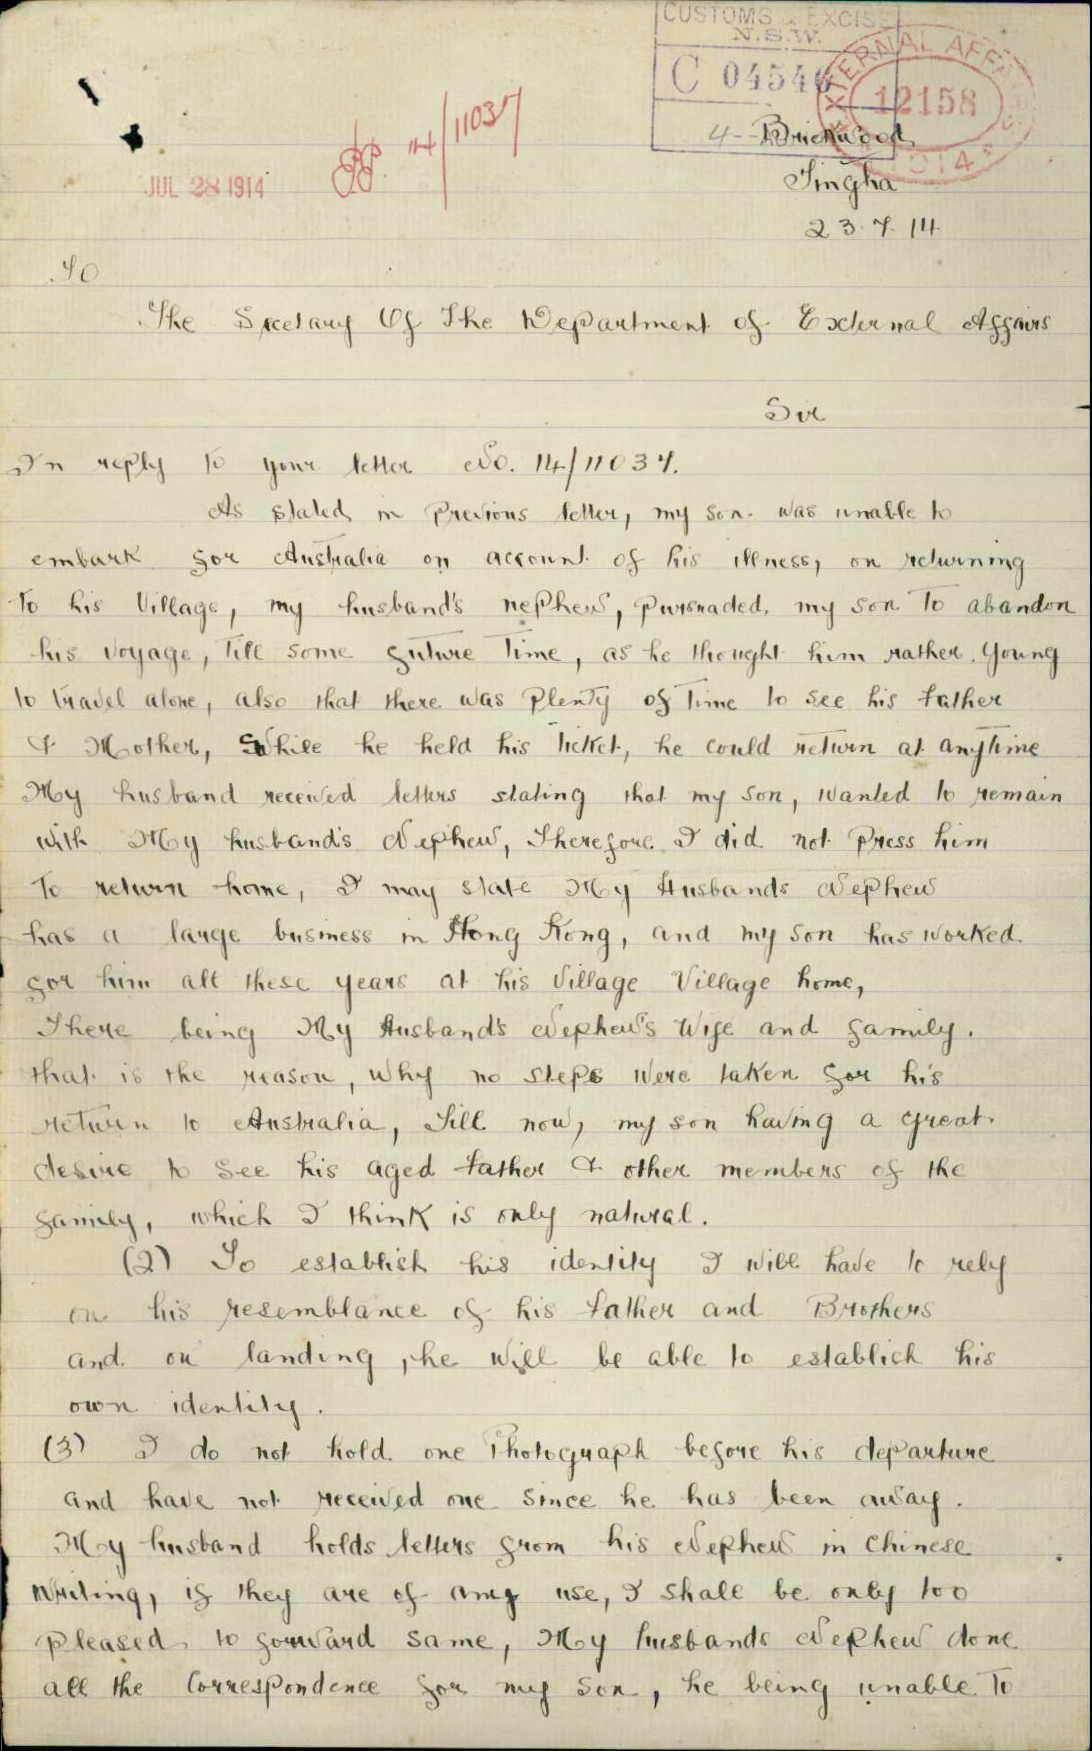 CUSTOMS & EXCISE
N.S.W.
C 04546
EXTERNAL AFFAIRS
12158
1914
14/11037
JUL 28 1914
Brickwood
Tingha
23.7.14
To
The Secetary Of The Department of External Affairs
Sir
In reply to your letter No. 14/11037.
As stated in Previous letter, my son was unable to
embark for Australia on account of his illness, on returning
To his Village, my husband's nephew, pursuaded my son To abandon
his voyage, Till some future Time, as he thought him rather young
to travel alone, also that there was Plenty of Time to see his father
& Mother, While he held his Ticket, he could return at anytime
My husband received letters stating that my son, wanted to remain
with My husband's Nephew, Therefore I did not Press him
To return home, I may state My Husbands Nephew
has a large business in Hong Kong, and my son has worked
for him all these years at his Village Village home,
There being My Husband's Nephew's Wife and family.
that is the reason, why no steps were taken for his
return to Australia, Till now, my son having a great
desire to see his aged father & other members of the
family, which I think is only natural.
(2) To establish his identity I will have to rely
on his resemblance of his father and Brothers
and on landing, he will be able to establish his
own identity.
(3) I do not hold one Photograph before his departure
and have not received one since he has been away.
My husband holds letters from his Nephew in Chinese
Writing, if they are of any use, I shall be only too
pleased to forward same, My husbands Nephew done
all the Correspondence for my son, he being unable To